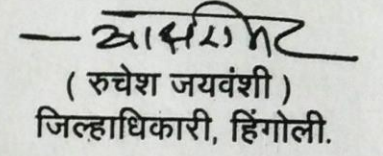 ( रुचेश जयवंशी )
जिल्हाधिकारी, हिंगोली.